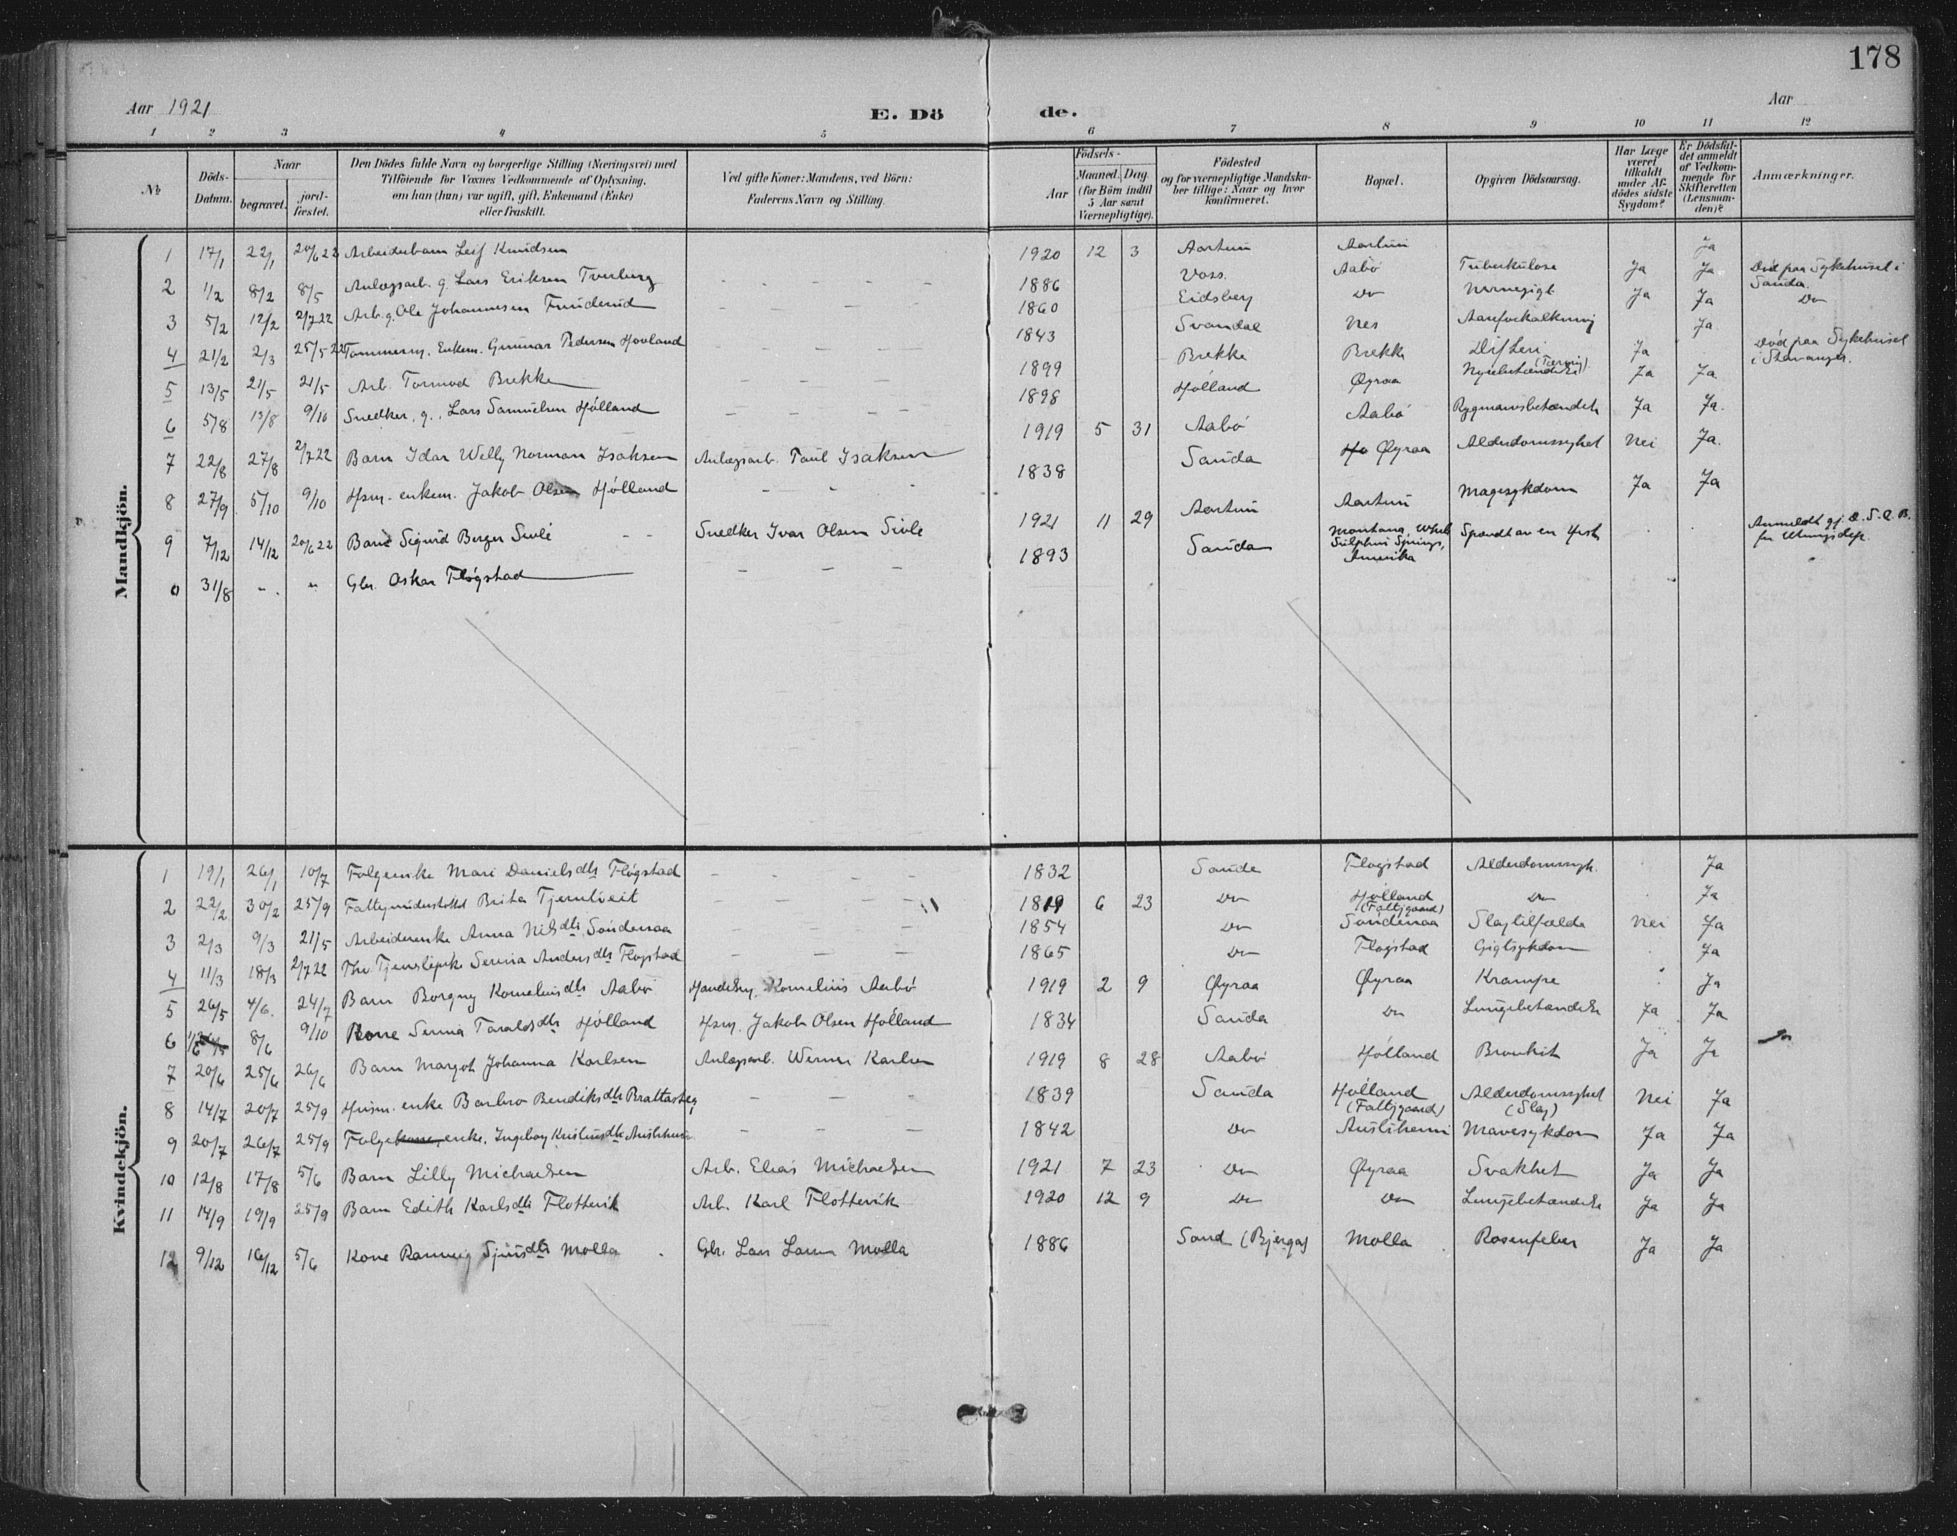 178
Aar 1921 E. Dö de. Aar
1 2 3 4 5 6 7 8 9 10 11 12
№ Döds-Datum. Naar begravet. jord-fæstet. Den Dödes fulde Navn og borgerlige Stilling (Næringsvei) med Tilföiende for Voxnes Vedkommende af Oplysning, om han (hun) var ugift, gift, Enkemand (Enke) eller fraskilt. Ved gifte Koner: Mandens, ved Börn: Faderens Navn og Stilling. Födsels- Aar Maaned. Dag. (for Börn indtil 5 Aar samt Værnepligtige). Födested og for værnepligtige Mandskaber tillige: Naar og hvor konfirmeret. Bopæl. Opgiven Dödsaarsag. Har Læge været tilkaldt under Afdödes sidste Sygdom? Er Dödsfaldet anmeldt af Vedkommende for Skifteretten (Lensmanden)? Anmærkninger.
Mandkjön.
1 17/1 22/1 20/6 22 Arbeiderbarn Leif Knudsen 1920 12 3 Aartun Aartun Ja
2 1/2 8/2 8/5 Anlægsarb. g. Lars Eriksen Tverberg 1886 Voss. Aabö Tuberkulose Ja Ja Död paa Sykehuset i Sauda.
3 5/2 12/2 2/7 22 Arb. g. Ole Johannesen Funderud 1860 Eidsberg Do Ja Ja Do
4 21/2 2/3 25/5 22 Tømmerm. Enkem. Gunnar Pedersen Hovland 1843 Svandal Nes Aareforkalkning Ja
5 13/5 21/5 21/5 Arb. Tormod Brekke 1899 Brekke Brekke Ja Död paa Sykehuset i Stavanger.
6 5/8 13/8 9/10 Snedker, g., Lars Samuelsen Hölland 1898 Hölland Øyraa Nyrebetændelse Ja Ja
7 22/8 27/8 2/7 22 Barn Idar Welly Norman Isaksen Anlægsarb. Paul Isaksen 1919 5 31 Aabö Aabö Rygmarvsbetændels Ja Ja.
8 27/9 5/10 9/10 Hsm. enkem. Jakob Olsen Hölland 1838 Sauda Øyraa Alderdomssyghet Nei Ja.
9 7/12 14/12 20/6 22 Barn Sigurd Berger Sivle Snedker Ivar Olsen Sivle 1921 11 29 Aartun Aartun Magesykdom Ja Ja
0 31/8 - " Gbr. Oskar Fløgstad 1893 Sauda Montana, White Sulphur Springs, Amerika Spændt av en Hest Anmeldt gj.
Kvindekjön.
1 19/1 26/1 10/7 Folgeenke Mari Danielsdtr Fløgstad 1832 Sauda Flogstad Alderdomssygh. Ja
2 22/2 30/2 25/9 Fattigunderstøttet Brita Tjerntveit 1819 6 23 Do Hölland (Fattiggaard) Do Ja
3 2/3 9/3 21/5 Arbeiderenke Anna Nilsdtr. Söndenaa 1854 Do Söndenaa Slagtilfælde Nei Ja
4 11/3 18/3 2/7 22 Fhv. Tjenstepike Serina Andersdtr Flogstad 1865 Do Flogstad Gigtsykdom Ja
5 26/5 4/6. 24/7 Barn Borgny Korneliusdtr Aabö Handelsm. Kornelius Aabö 1919 2 9 Øyraa Øyraa Krampe Ja
6 1/6 8/6 9/10 Kone Serina Taraldsdtr Hölland Hsm. Jakob Olsen Hölland 1834 Sauda Do Lungebetændelse Ja Ja
7 20/6 25/6 26/6 Barn Margot Johanna Karlsen Anlægsarb. Werner Karlsen 1919 8 28 Aabö Hölland Bronkit Ja Ja
8 14/7 20/7 25/9 Husm. enke Barbro Bendiksdtr Brattasteg 1839 Sauda Hölland (Fattiggaard) Alderdomssyghet (Slag) Nei Ja
9 20/7 26/7 25/9 Folge enke. Ingeborg 1842 Do Austrheim Mavesykdom Ja Ja
10 12/8 17/8 5/6 Barn Lilly Michaelsen Arb. Elias Michaelsen 1921 7 23 Do Øyraa Svakhet Ja Ja
11 14/9 19/9 25/9 Barn Edith Karlsdtr Flottevik Arb. Karl Flottevik 1920 12 9 Do Do Lungebetændelse Ja Ja
12 9/12 16/12 5/6 Kone Ranveig Sjursdtr Molla Gbr. Lars Larsen Molla 1886 Sand (Bjerga) Molla Rosenfeber Ja Ja